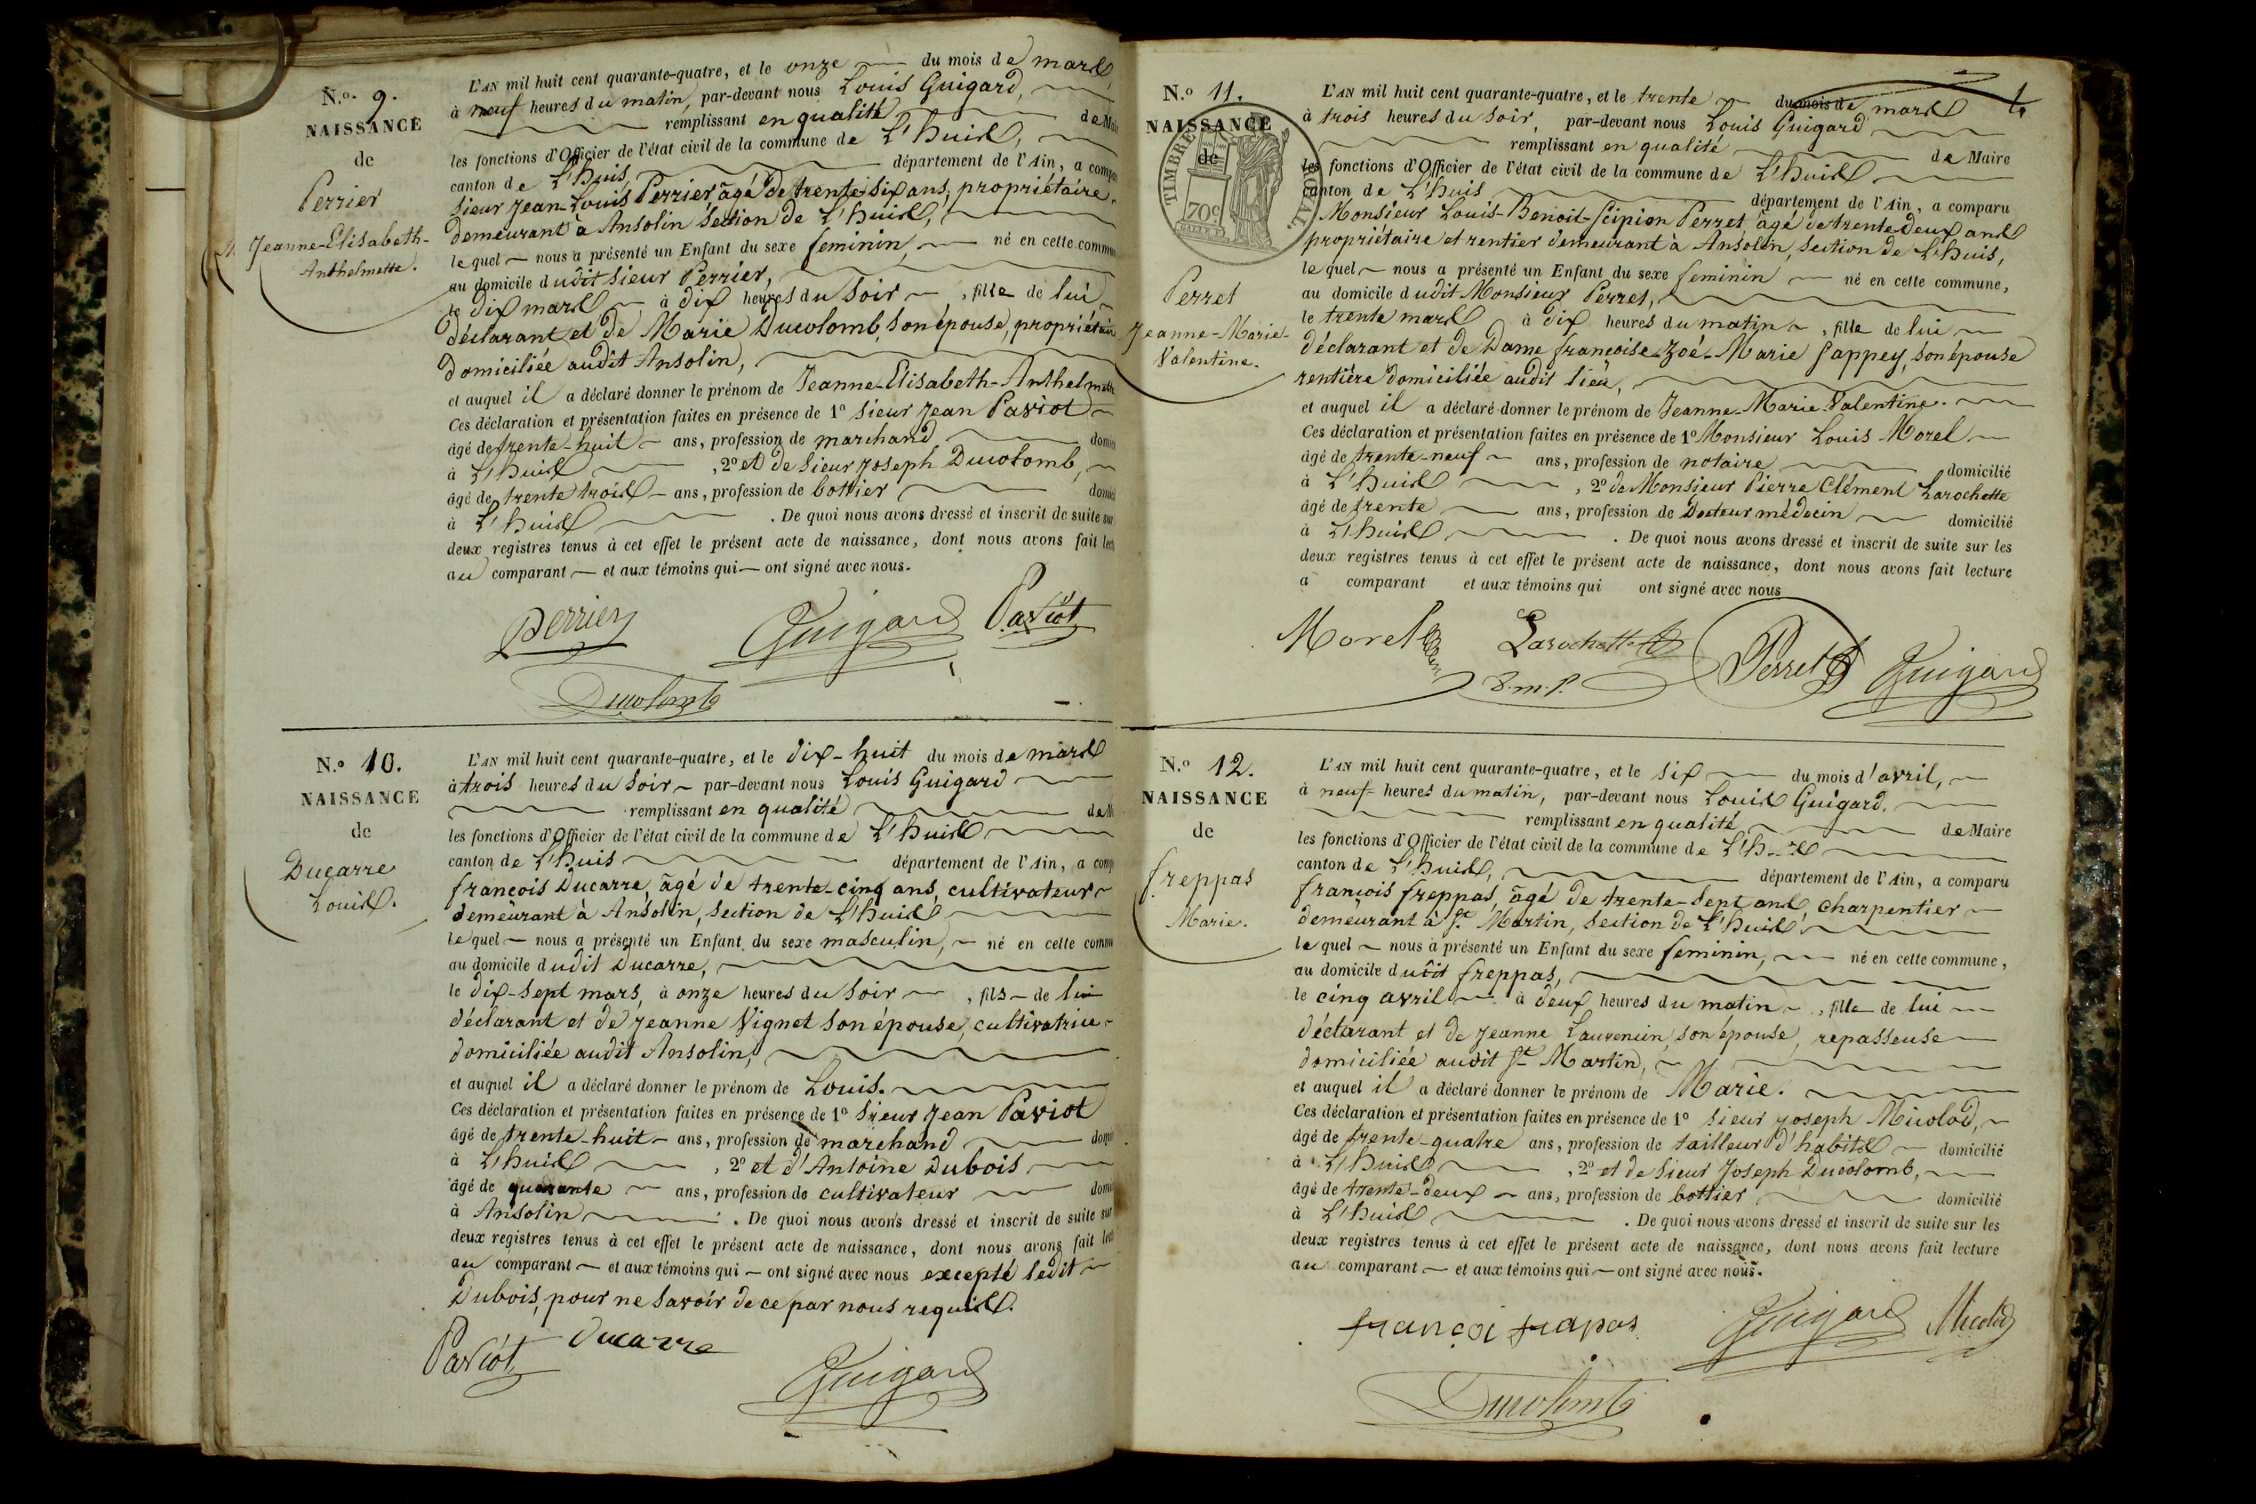 N.o 9.
NAISSANCE
de
Perrier
Jeanne-Elisabeth-
Anthelmette.
L'AN mil huit cent quarante-quatre, et le onze du mois de mars
à neuf heures du matin, par-devant nous Louis Guigard,
remplissant en qualité de Mai
les fonctions d'Officier de l'état civil de la commune de L'huis,
canton de L'huis, département de l'Ain, a compa
sieur Jean-Louis Perrier âgé de trente-six ans, propriétaire,
demeurant à Ansolin section de L'huis,
lequel nous a présenté un Enfant du sexe feminin, né en cette commun
au domicile dudit sieur Perrier,
le dix mars à dix heures du soir, fille de lui
déclarant et de Marie Ducolomb, son épouse, propriétaire
domiciliée audit Ansolin,
et auquel il a déclaré donner le prénom de Jeanne-Elisabeth-Anthelmette
Ces déclaration et présentation faites en présence de 1o sieur Jean Paviot
âgé de trente-huit ans, profession de marchand domici
à L'huis, 2o et de sieur Joseph Ducolomb,
âgé de trente trois ans, profession de bottier domici
à L'huis. De quoi nous avons dressé et inscrit de suite sur
deux registres tenus à cet effet le présent acte de naissance, dont nous avons fait lect
au comparant et aux témoins qui ont signé avec nous.
Perrier Guigard Paviot
Ducolomb
N.o 10.
NAISSANCE
de
Ducarre
Louis.
L'AN mil huit cent quarante-quatre, et le dix-huit du mois de mars
à trois heures du soir par-devant nous Louis Guigard
remplissant en qualité de M
les fonctions d'Officier de l'état civil de la commune de L'huis
canton de L'huis département de l'Ain, a comp
françois Ducarre, âgé de trente-cinq ans, cultivateur
demeurant à Ansolin, section de L'huis
lequel nous a présenté un Enfant du sexe masculin, né en cette commu
au domicile dudit Ducarre,
le dix-sept mars, à onze heures du soir, fils de lui
déclarant et de Jeanne Vignet son épouse, cultivatrice
domiciliée audit Ansolin,
et auquel il a déclaré donner le prénom de Louis.
Ces déclaration et présentation faites en présence de 1o sieur Jean Paviot
âgé de trente-huit ans, profession de marchand domi
à L'huis, 2o et d'Antoine Dubois
âgé de quarante ans, profession de cultivateur domi
à Ansolin. De quoi nous avons dressé et inscrit de suite sur
deux registres tenus à cet effet le présent acte de naissance, dont nous avons fait lect
au comparant et aux témoins qui ont signé avec nous excepté ledit
Dubois, pour ne savoir de ce par nous requis.
Paviot Ducarre
Guigard
N.o 11.
NAISSANCE
de
TIMBRE ROYAL
70c
Perret
Jeanne-Marie-
Valentine.
L'AN mil huit cent quarante-quatre, et le trente du mois de mars
à trois heures du soir, par-devant nous Louis Guigard
remplissant en qualité de Maire
les fonctions d'Officier de l'état civil de la commune de L'huis
canton de L'huis département de l'Ain, a comparu
Monsieur Louis-Benoit-Scipion Perret, âgé de trente-deux ans
propriétaire et rentier demeurant à Ansolin, section de L'huis,
lequel nous a présenté un Enfant du sexe feminin né en cette commune,
au domicile dudit Monsieur Perret,
le trente mars à dix heures du matin, fille de lui
déclarant et de Dame françoise-Zoé-Marie Sappey, son épouse
rentière domiciliée audit lieu,
et auquel il a déclaré donner le prénom de Jeanne-Marie-Valentine.
Ces déclaration et présentation faites en présence de 1o Monsieur Louis Morel
âgé de trente-neuf ans, profession de notaire domicilié
à L'huis, 2o de Monsieur Pierre Clément Larochette
âgé de trente ans, profession de Docteur médecin domicilié
à L'huis. De quoi nous avons dressé et inscrit de suite sur les
deux registres tenus à cet effet le présent acte de naissance, dont nous avons fait lecture
a comparant et aux témoins qui ont signé avec nous
Morel Larochette Perret Guigard
D.m.P.
N.o 12.
NAISSANCE
de
freppas
Marie.
L'AN mil huit cent quarante-quatre, et le six du mois d'avril,
à neuf heures du matin, par-devant nous Louis Guigard.
remplissant en qualité de Maire
les fonctions d'Officier de l'état civil de la commune de L'huis
canton de L'huis, département de l'Ain, a comparu
françois freppas, âgé de trente-sept ans, charpentier
demeurant à St. Martin, section de L'huis,
lequel nous a présenté un Enfant du sexe feminin, né en cette commune,
au domicile dudit freppas,
le cinq avril à deux heures du matin, fille de lui
déclarant et de Jeanne Laurencin, son épouse, repasseuse
domiciliée audit St. Martin,
et auquel il a déclaré donner le prénom de Marie.
Ces déclaration et présentation faites en présence de 1o sieur Joseph Micolod,
âgé de trente-quatre ans, profession de tailleur d'habits domicilié
à L'huis, 2o et de sieur Joseph Ducolomb,
âgé de trente-deux ans, profession de bottier domicilié
à L'huis. De quoi nous avons dressé et inscrit de suite sur les
deux registres tenus à cet effet le présent acte de naissance, dont nous avons fait lecture
au comparant et aux témoins qui ont signé avec nous.
françoi frapas Guigard Micolod
Ducolomb